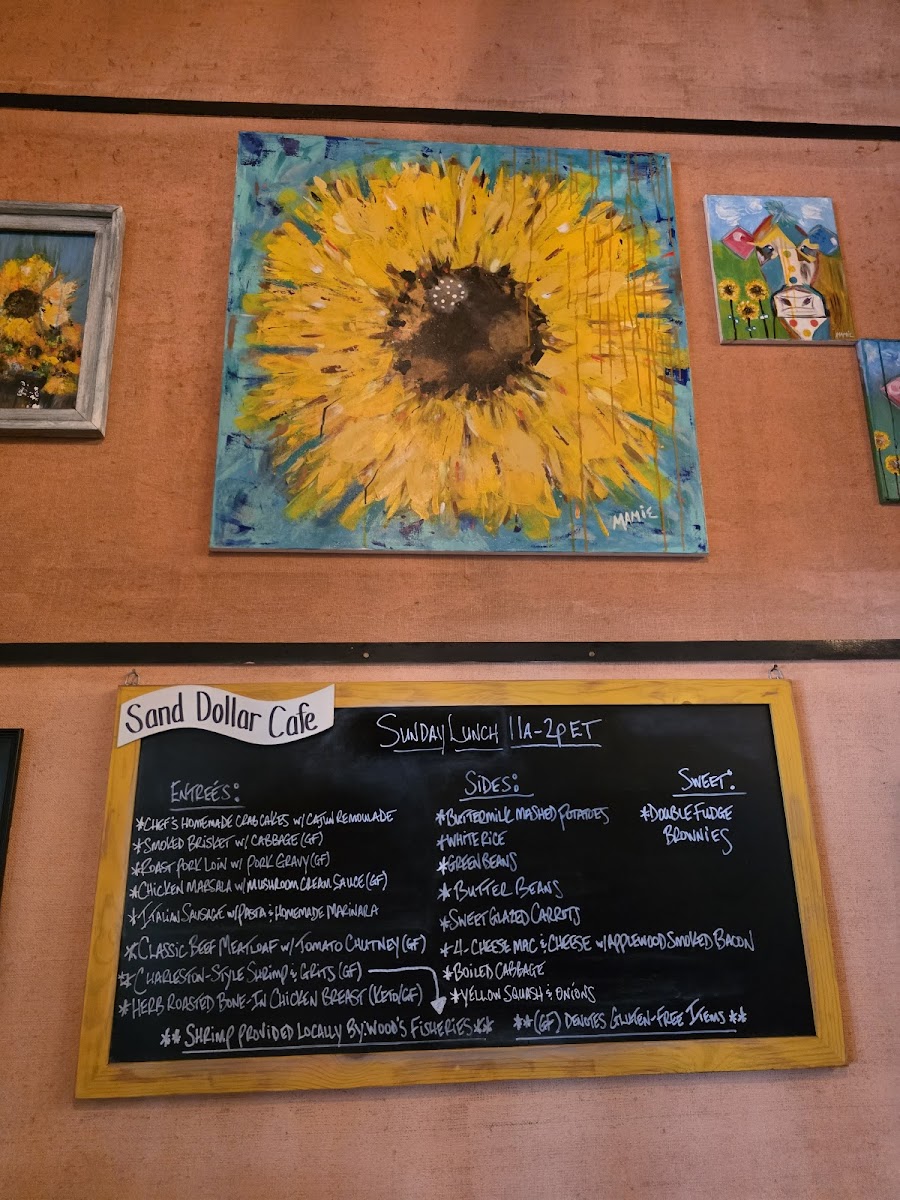 MAMIE
MAMIE
Sand Dollar Cafe
SUNDAY LUNCH 11A-2P ET
ENTREÉS:
*CHEF'S HOMEMADE CRAB CAKES W/ CAJUN REMOULADE
*SMOKED BRISKET W/ CABBAGE (GF)
*ROAST PORK LOIN W/ PORK GRAVY (GF)
*CHICKEN MARSALA W/ MUSHROOM CREAM SAUCE (GF)
*ITALIAN SAUSAGE W/ PASTA & HOMEMADE MARINARA
*CLASSIC BEEF MEATLOAF W/ TOMATO CHUTNEY (GF)
*CHARLESTON-STYLE SHRIMP & GRITS (GF)
*HERB ROASTED BONE-IN CHICKEN BREAST (KETO/GF)
** SHRIMP PROVIDED LOCALLY BY: WOOD'S FISHERIES **
SIDES:
*BUTTERMILK MASHED POTATOES
*WHITE RICE
*GREEN BEANS
*BUTTER BEANS
*SWEET GLAZED CARROTS
*4-CHEESE MAC & CHEESE W/ APPLEWOOD SMOKED BACON
*BOILED CABBAGE
*YELLOW SQUASH & ONIONS
**(GF) DENOTES GLUTEN-FREE ITEMS **
SWEET:
*DOUBLE FUDGE
BROWNIES